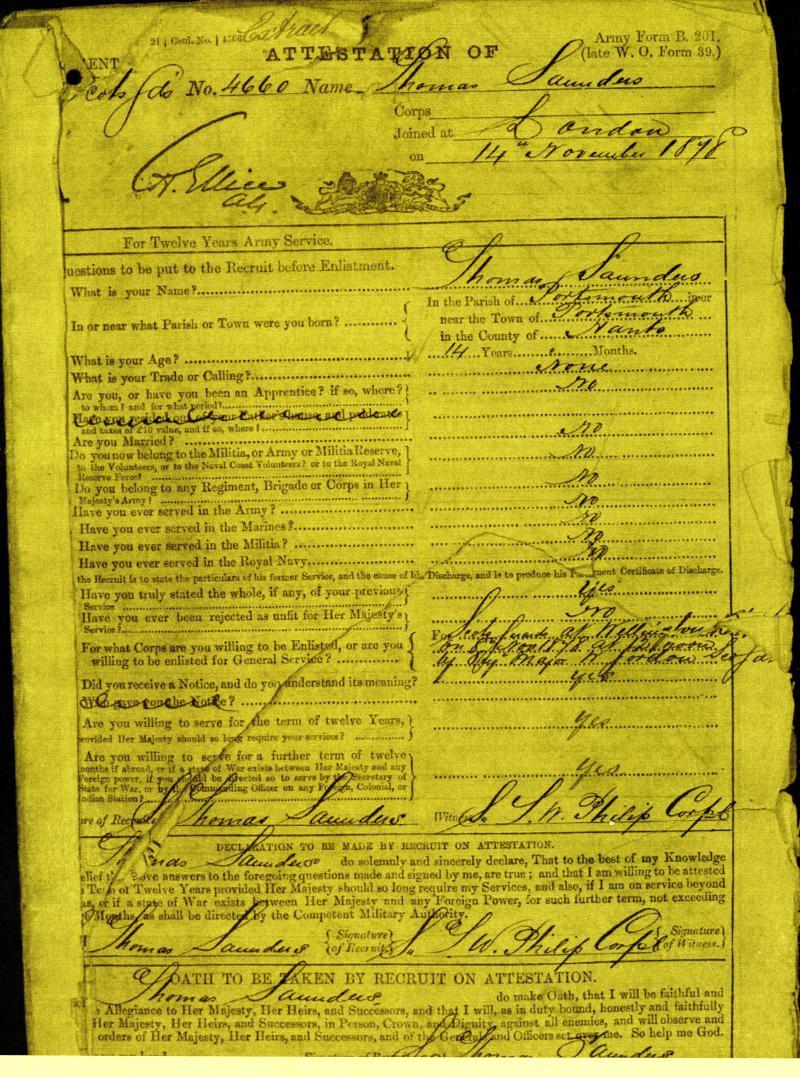 Extract
Army Form B. 201.
ATTESTATION OF
(late W. O. Form 39.)
ENT
cots Gds No. 4660 Name Thomas Saunders
Corps
Joined at London
on 14th November 1878
For Twelve Years Army Service.
uestions to be put to the Recruit before Enlistment.
What is your Name? Thomas Saunders
In or near what Parish or Town were you born?
In the Parish of Portsmouth in or
near the Town of Portsmouth
in the County of Hants
What is your Age? 14 Years Months.
What is your Trade or Calling? None
Are you, or have you been an Apprentice? if so, where? No
to whom? and for what period?
and taxes of £10 value, and if so, where?
Are you Married? No
Do you now belong to the Militia, or Army or Militia Reserve, No
to the Volunteers, or to the Naval Coast Volunteers? or to the Royal Naval
Reserve Force?
Do you belong to any Regiment, Brigade or Corps in Her No
Majesty's Army?
Have you ever served in the Army? No
Have you ever served in the Marines? No
Have you ever served in the Militia? No
Have you ever served in the Royal Navy No
the Recruit is to state the particulars of his former Service, and the cause of his Discharge, and is to produce his Parchment Certificate of Discharge.
Have you truly stated the whole, if any, of your previous Yes
Service
Have you ever been rejected as unfit for Her Majesty's No
Service?
For what Corps are you willing to be Enlisted, or are you
willing to be enlisted for General Service?
For Scots Guards at Wellington
Did you receive a Notice, and do you understand its meaning? Yes
Who gave you the Notice?
Are you willing to serve for the term of twelve Years, Yes
rovided Her Majesty should so long require your services?
Are you willing to serve for a further term of twelve Yes
months if abroad, or if a state of War exists between Her Majesty and any
Foreign power, if you should be directed so to serve by the Secretary of
State for War, or by the Commanding Officer on any Foreign, Colonial, or
Indian Station?
re of Recruit Thomas Saunders Witness S. W. Philip Corpl
DECLARATION TO BE MADE BY RECRUIT ON ATTESTATION.
Thomas Saunders do solemnly and sincerely declare, That to the best of my Knowledge
elief the above answers to the foregoing questions made and signed by me, are true; and that I am willing to be attested
a Term of Twelve Years provided Her Majesty should so long require my Services, and also, if I am on service beyond
as, or if a state of War exists between Her Majesty and any Foreign Power, for such further term, not exceeding
Months, as shall be directed by the Competent Military Authority.
Thomas Saunders { Signature of Recruit. S. W. Philip Corpl { Signature of Witness.
OATH TO BE TAKEN BY RECRUIT ON ATTESTATION.
Thomas Saunders do make Oath, that I will be faithful and
Allegiance to Her Majesty, Her Heirs, and Successors, and that I will, as in duty bound, honestly and faithfully
Her Majesty, Her Heirs, and Successors, in Person, Crown, and Dignity, against all enemies, and will observe and
orders of Her Majesty, Her Heirs, and Successors, and of the Generals and Officers set over me. So help me God.
Thomas Saunders